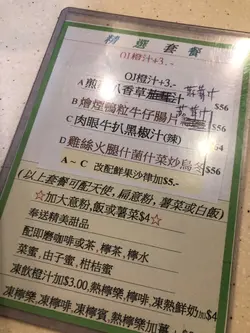 精選套餐
OJ橙汁+3.-
OJ橙汁+3.-
A 煎 八香草 汁 $56
B 燴煙鴨粒牛仔腸片 $56
C 肉眼牛扒黑椒汁(辣) $56
D 雞絲火腿什菌什菜炒烏冬 $56
A～C 改配鮮果沙律加$5,-
(以上套餐可配天使,扁意粉,薯菜或白飯)
☆加大意粉,飯或薯菜$4☆
奉送精美甜品
配即磨咖啡或茶,檸茶,檸水
菜蜜,由子蜜,柑桔蜜
凍飲橙汁加$3.00,熱檸樂,檸啡,凍熱鮮奶加$4
凍檸樂,凍檸啡,凍檸賓,熱檸樂加薑